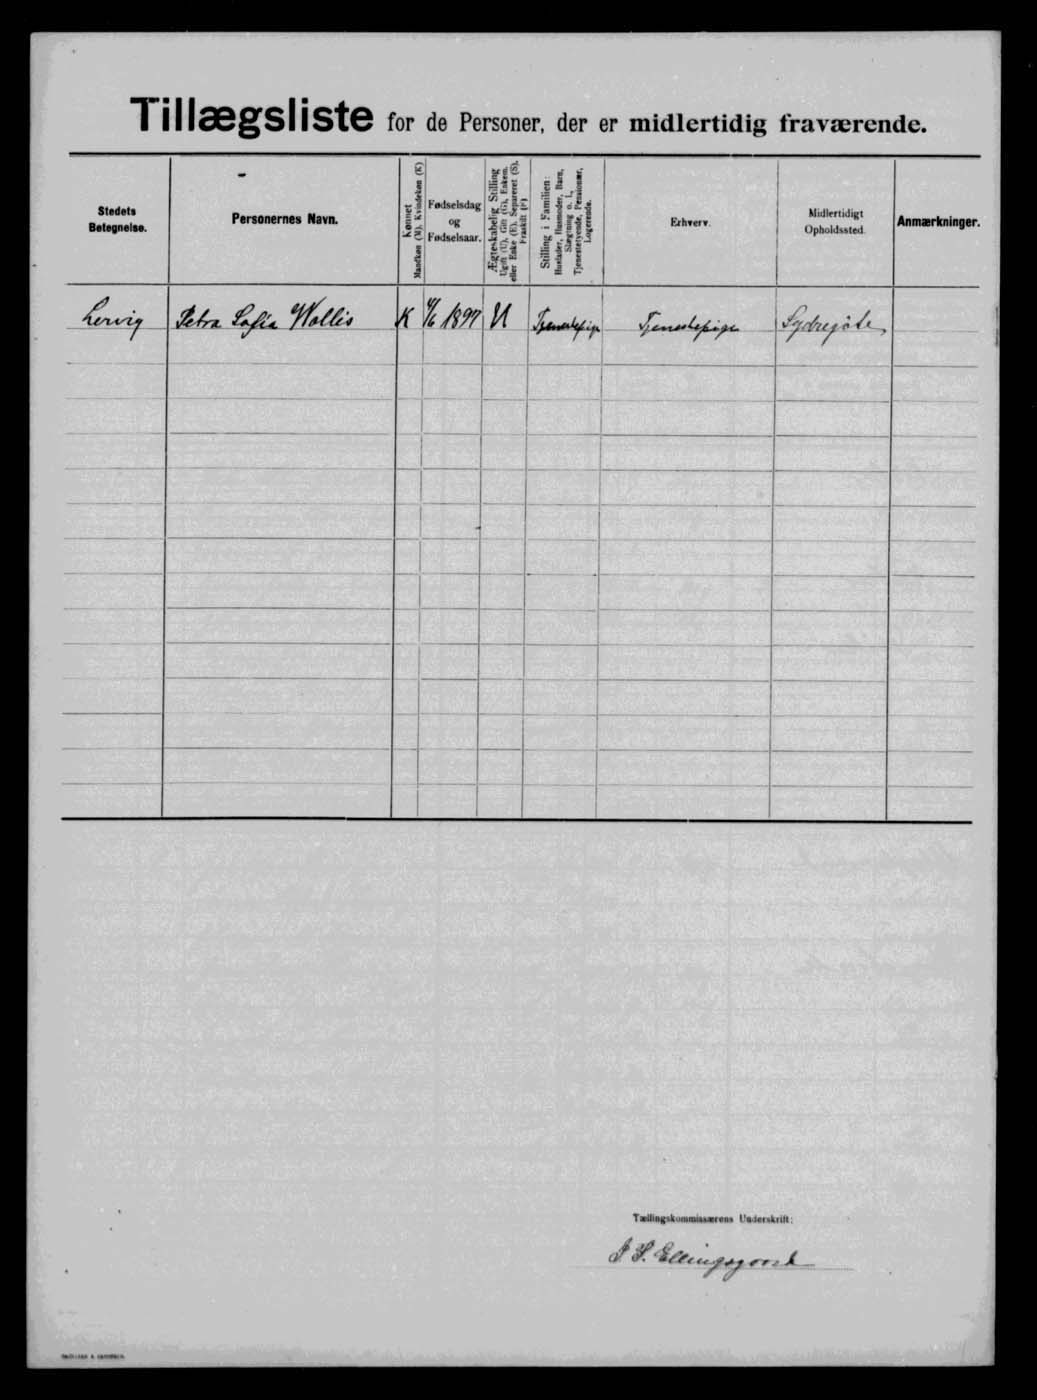 Tillægsliste for de Personer, der er midlertidig fraværende.
Stedets Betegnelse.
Personernes Navn.
Kønnet
Mandkøn (M), Kvindekøn (K)
Fødselsdag
og
Fødselsaar.
Ægteskabelig Stilling
Ugift (U), Gift (G), Enkem.
eller Enke (E), Separeret (S),
Fraskilt (F)
Stilling i Familien:
Husfader, Husmoder, Barn,
Slægtning o. l.,
Tjenestetyende, Pensionær,
Logerende.
Erhverv.
Midlertidigt
Opholdssted.
Anmærkninger.
Lervig Petra Sofia Wallis K 4/6 1897 U Tjenestepige Tjenestepige Sydregøte
Tællingskommissærens Underskrift:
Ellingsgaard